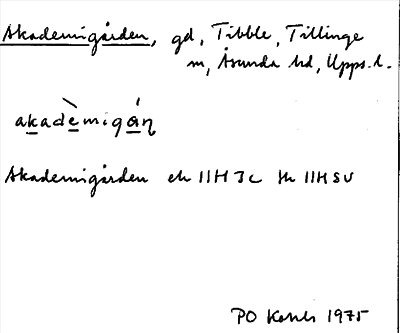 Akademigården, gd, Tibble, Tillinge
sn, Åsunda hd, Upps. l.
akadèmigán̥
Akademigården ek 11H 3c hk 11H SV
PO 1975